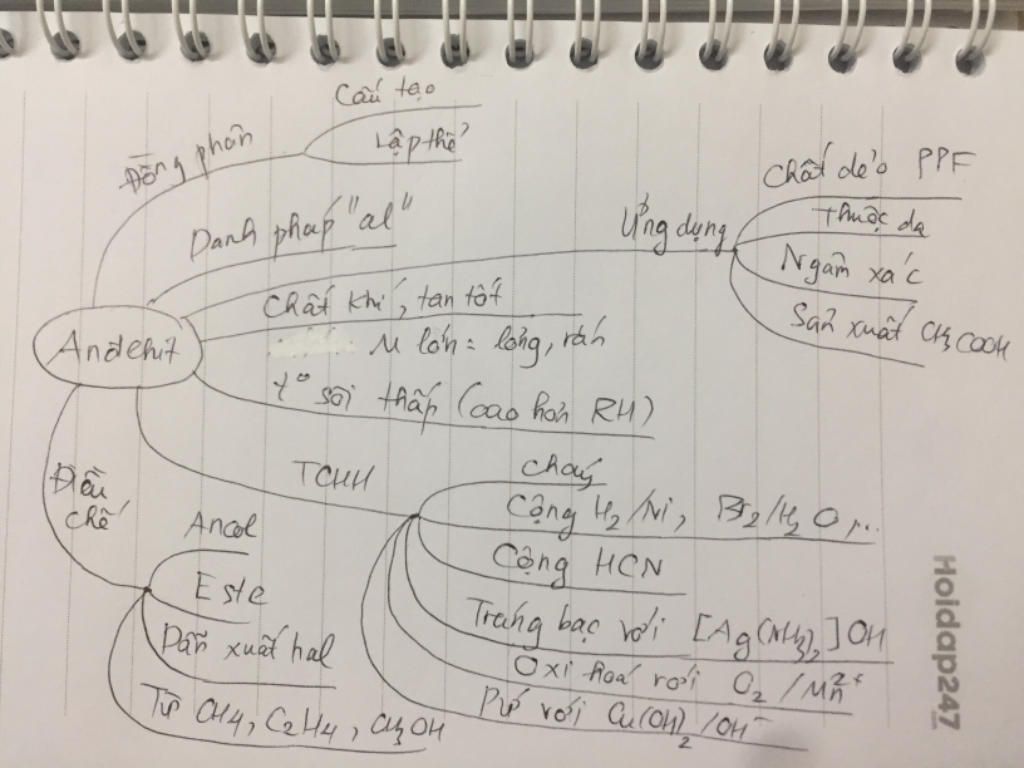 Cấu tạo
Lập thể
Đồng phân
Danh pháp "al"
Ứng dụng
Chất dẻo PPF
thuộc da
Ngâm xác
Sản xuất CH3COOH
Chất khí, tan tốt
M lớn: lỏng, rắn
Andehit
t° sôi thấp (cao hơn RH)
TCHH
cháy
Cộng H2/Ni, Br2/H2O,...
Cộng HCN
Tráng bạc với [Ag(NH3)2]OH
Oxi hoá với O2/Mn2+
Pứ với Cu(OH)2/OH-
Điều chế
Ancol
Este
Dẫn xuất hal
Từ CH4, C2H4, CH3OH
Hoidap247